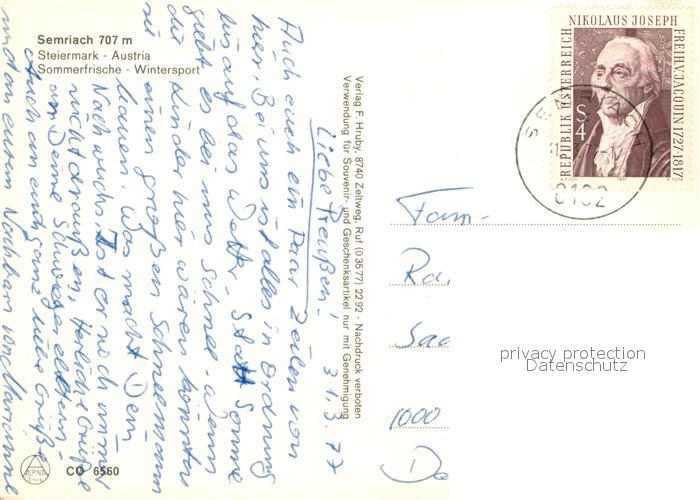 Semriach 707 m
Steiermark - Austria
Sommerfrische - Wintersport
31. 3. 77
Liebe Preußen!
Auch euch ein Paar Zeilen von
hier. Bei uns ist alles in Ordnung
bis auf das Wetter. Statt Sonne
giebt es bei uns Schnee. Wenn
die Kinder hier wären könnten
sie einen großen Schneemann
bauen. Was macht Dein
Nachwuchs. Ist er noch immer
nicht draußen. Herzliche Grüße
an Deine Schwiegereltern
Auch an euch ganz liebe Grüße
und an euren Nachbarn von Marianne
Verlag F. Hruby, 8740 Zeltweg, Ruf (0 35 77) 22 92 - Nachdruck verboten
Verwendung für Souvenir- und Geschenksartikel nur mit Genehmigung
NIKOLAUS JOSEPH
FREIH.V.JACQUIN 1727-1817
REPUBLIK ÖSTERREICH
S 4
SEMRIACH
8102
Fam.
1000
privacy protection
Datenschutz
ALPINA
CO 6560